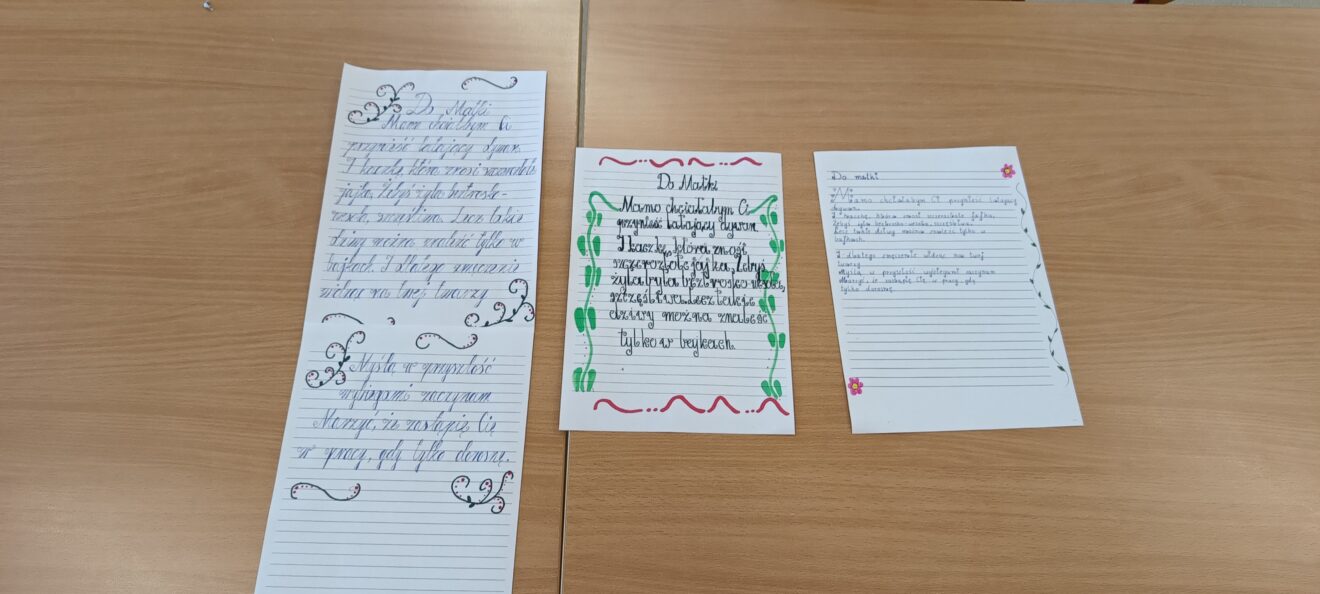 Do Matki
Mamo chciałbym Ci
przynieść latający dywan.
I kaczkę, która znosi szczerozłote
jajka, Żebyś żyła beztrosko-
wesoła, Lecz takie
dziwy można znaleźć tylko w
bajkach. I dlatego zmęczenie
widząc na twej twarzy
Myślą w przyszłość
wybiegami zaczynam
Marzyć, że zastąpię Cię
w pracy, gdy tylko dorosnę.
Do Matki
Mamo chciałabym Ci
przynieść latający dywan
I kaczkę, która znosi
szczerozłote jajka, Żebyś
żyła była beztrosko
szczęśliwa. Lecz takie
dziwy można znaleść
tylko w bajkach.
Do matki
Mamo chciałabym Ci przynieść latający
dywan.
I kaczkę, która znosi szczerozłote jajka,
Żebyś żyła beztrosko-wesoła, szczęśliwa.
Lecz takie dziwy można znaleźć tylko w
bajkach.
I dlatego zmęczenie widząc na twej
twarzy
Myślą w przyszłość wybiegami zaczynam
Marzyć, że zastąpię Cię w pracy, gdy
tylko dorosnę.